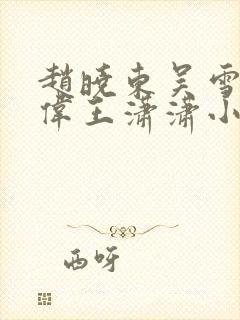 趙曉東吳雪
偉王瀟瀟小
西呀